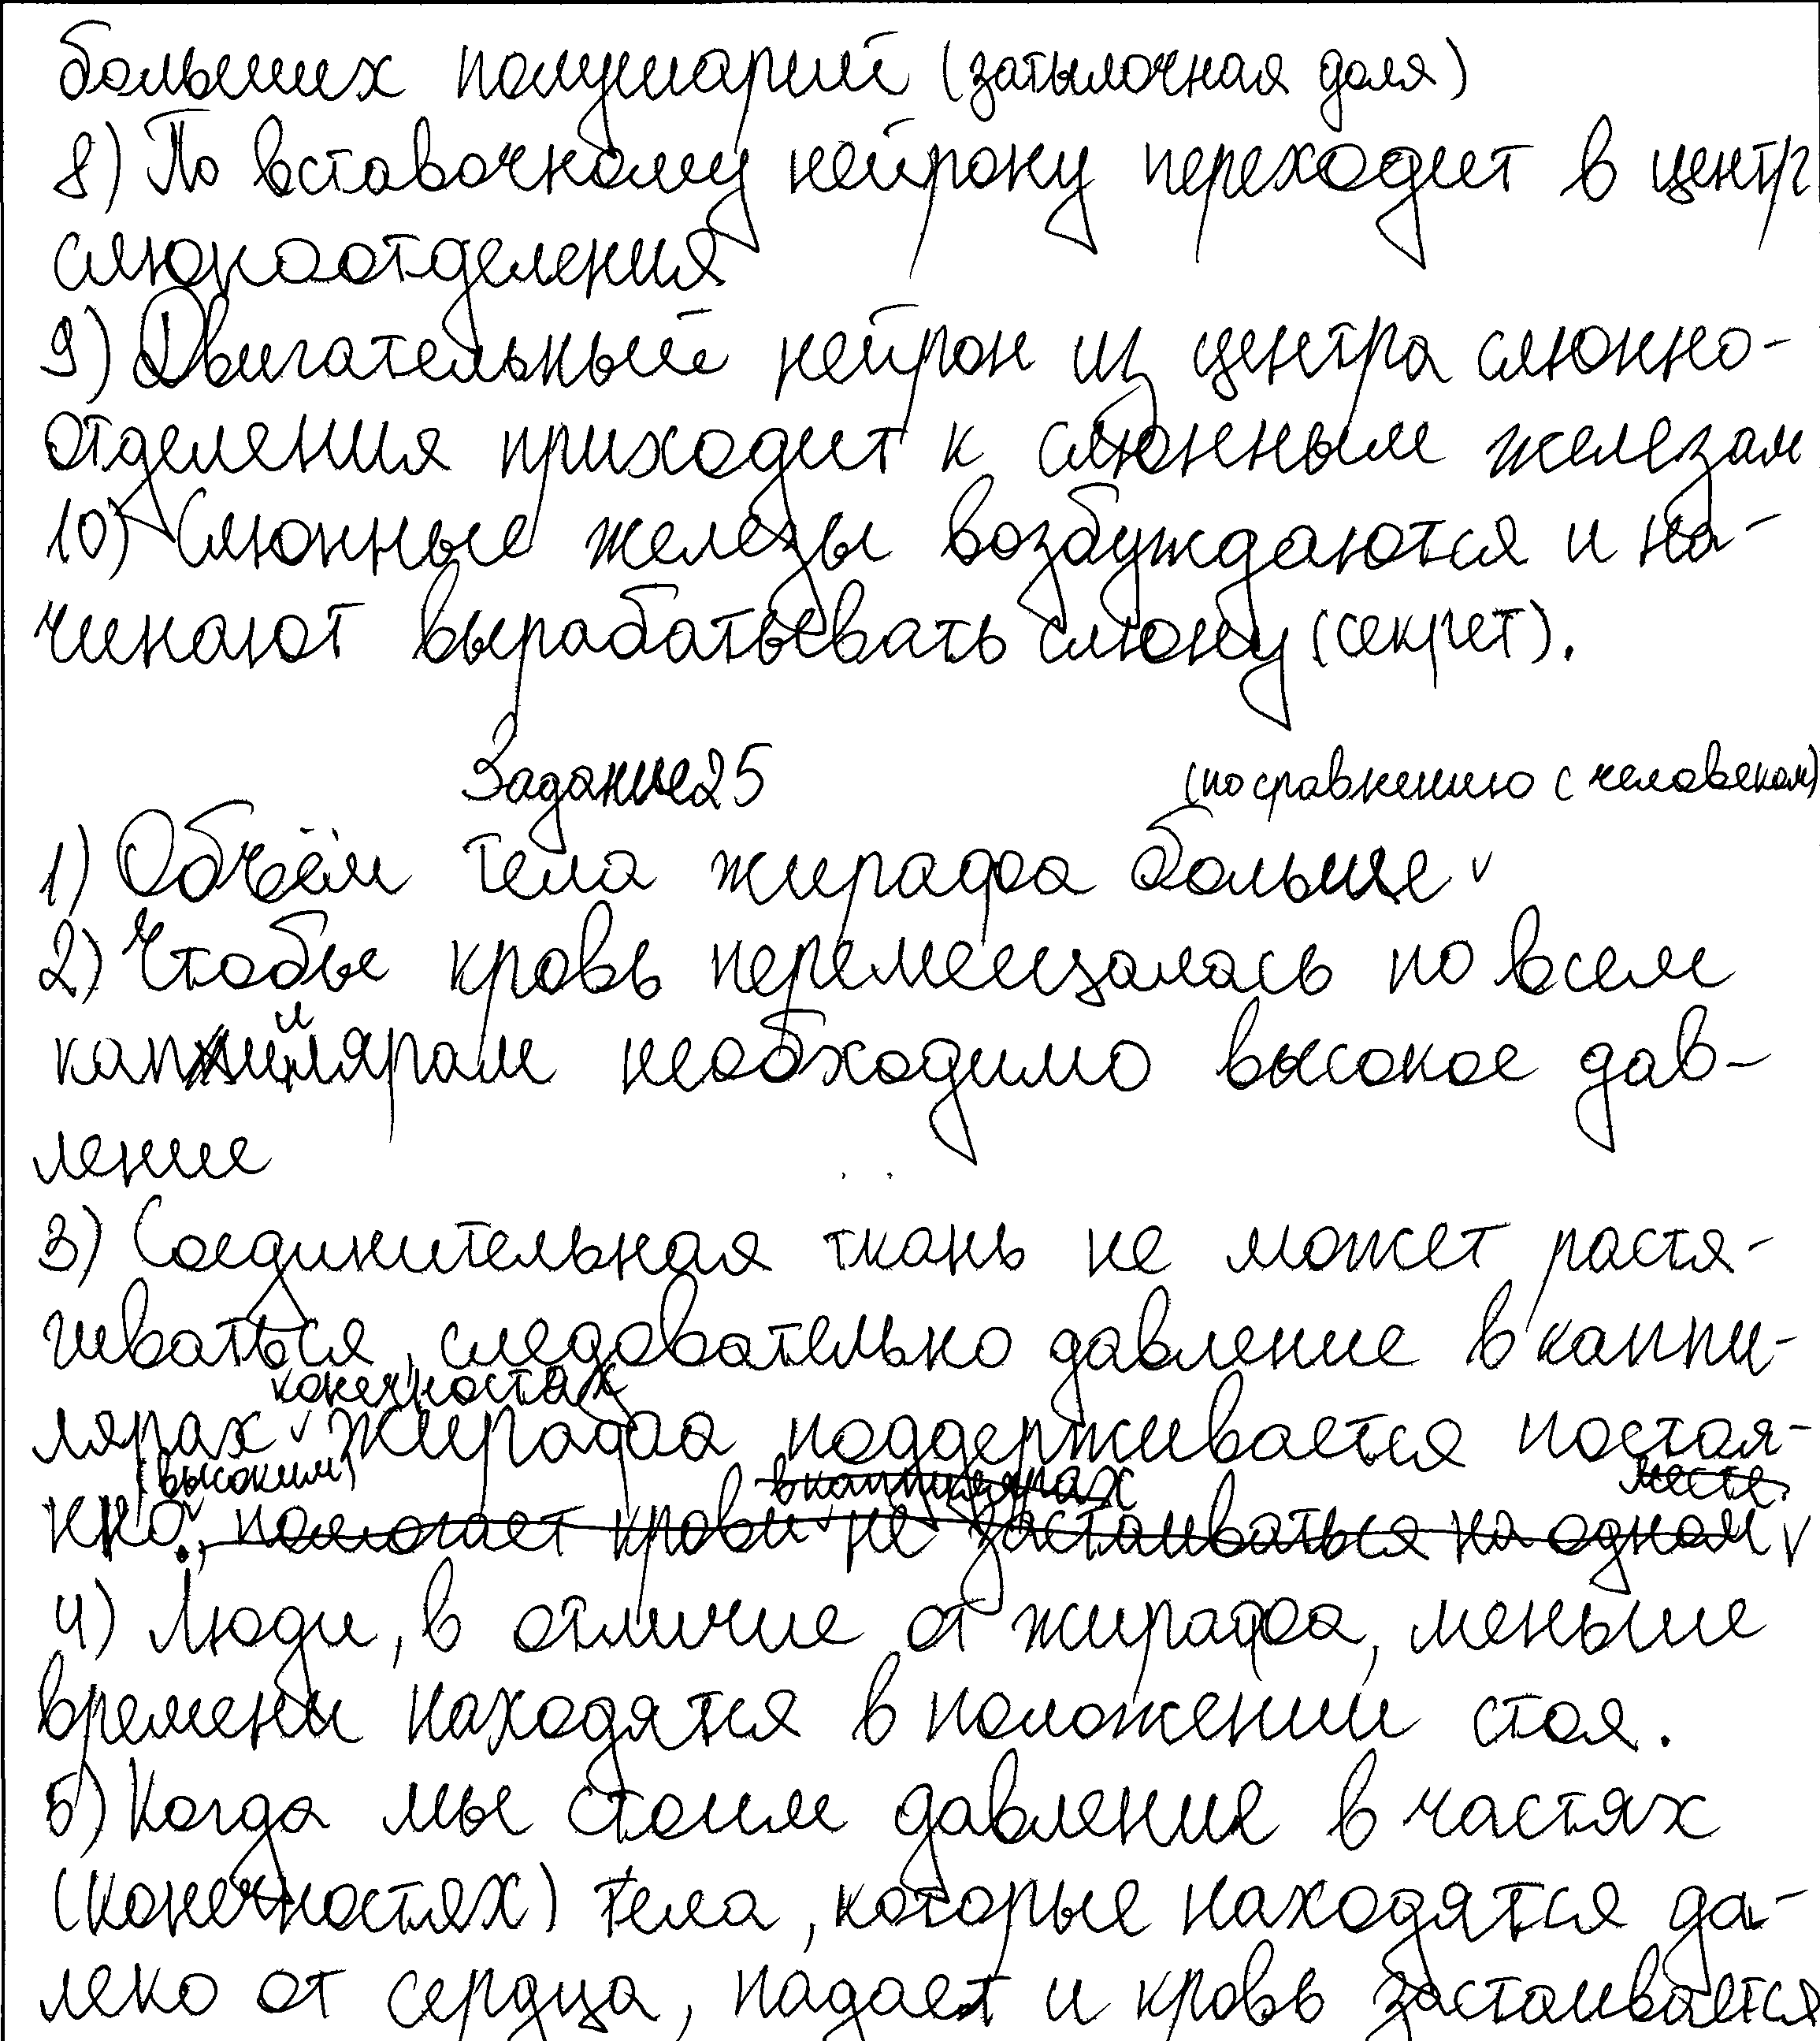 больших полушарий (затылочная доля)
8) По вставочному нейрону переходит в центр
слюноотделения
9) Двигательный нейрон из центра слюнно-
отделения приходит к слюнным железам
10) Слюнные железы возбуждаются и на-
чинают вырабатывать слюну (секрет).
Задание 25
(по сравнению с человеком)
1) Объём тела жирафа больше ✓
2) Чтобы кровь перемещалась по всем
капиллярам необходимо высокое дав-
ление
3) Соединительная ткань не может растя-
гиваться, следовательно давление в каппи-
конечностях
лярах ✓ жирафа поддерживается постоя-
(высоким) в каппилярах месте.
нно., помогает крови не застаиваться на одном ✓
4) Люди, в отличие от жирафа, меньше
времени находятся в положении стоя.
5) Когда мы стоим давление в частях
(конечностях) тела, которые находятся да-
леко от сердца, падает и кровь застаивается